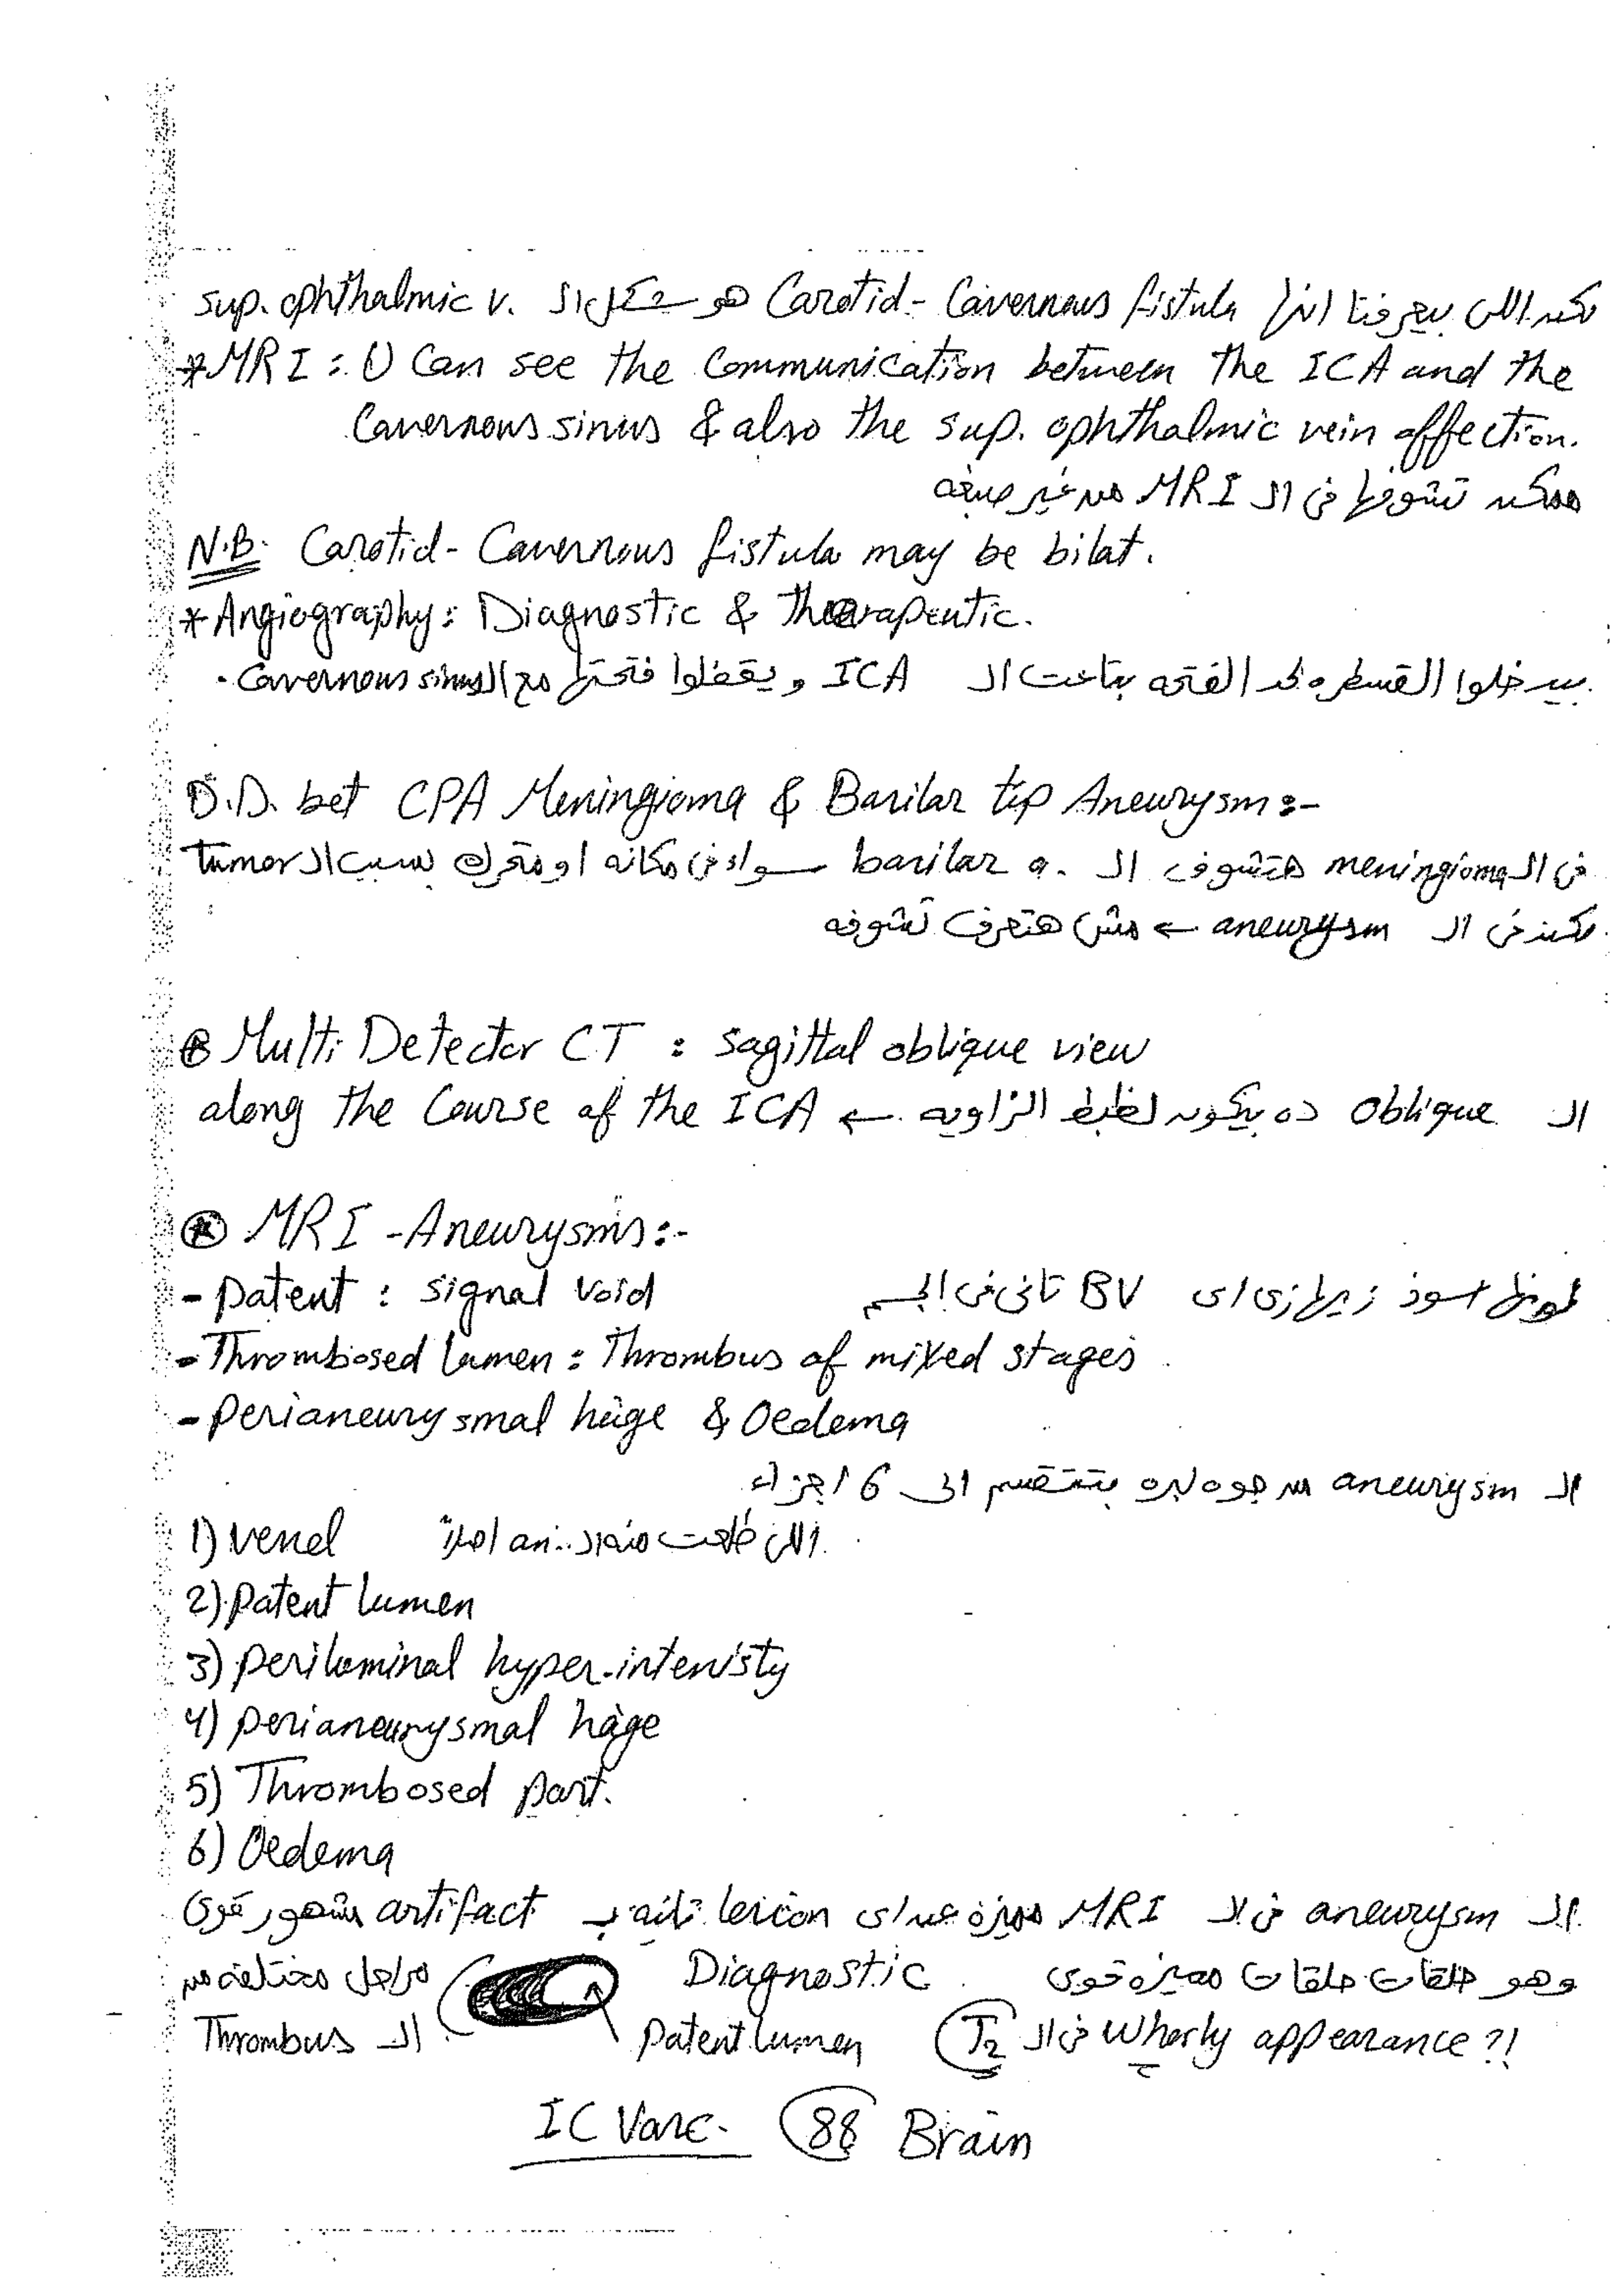 لكن اللي بيعرفنا انها Carotid-Cavernous fistula هو شكل الـ sup. ophthalmic v.
*MRI: 1) Can see the Communication between the ICA and the
Cavernous sinus & also the sup. ophthalmic vein affection.
ممكن تشوفها في الـ MRI من غير صبغه
N.B. Carotid-Cavernous fistula may be bilat.
*Angiography: Diagnostic & Therapeutic.
بيدخلوا القسطره لحد الفتحه بتاعت الـ ICA و يقفلوا فتحتها مع الـ Cavernous sinus.
D.D. bet CPA Meningioma & Basilar tip Aneurysm:-
في الـ meningioma هتشوف الـ basilar a. سواء في مكانه او متحرك بسبب الـ tumor
لكن في الـ aneurysm ← مش هتعرف تشوفه
* Multi Detector CT : sagittal oblique view
along the Course of the ICA ← الـ Oblique ده بيكون لظبط الزاويه
* MRI -Aneurysms:-
- Patent : signal void لونها اسود زيها زي اي BV تاني في الجسم
- Thrombosed lumen : Thrombus of mixed stages
- Perianeurysmal hage & Oedema
الـ aneurysm من جوه لبره بتتقسم الى 6 اجزاء
1) vessel اللي طلعت منه الـ an. اصلاً
2) patent lumen
3) periluminal hyper-intenisty
4) perianeurysmal hage
5) Thrombosed part.
6) Oedema
الـ aneurysm في الـ MRI مميزه عن اي lesion تانيه بـ artifact مشهور قوي
وهو حلقات حلقات مميزه قوي Diagnostic مراحل مختلفه من
Wherly appearance ?! في الـ T2 patent lumen الـ Thrombus
IC Vasc. 88 Brain